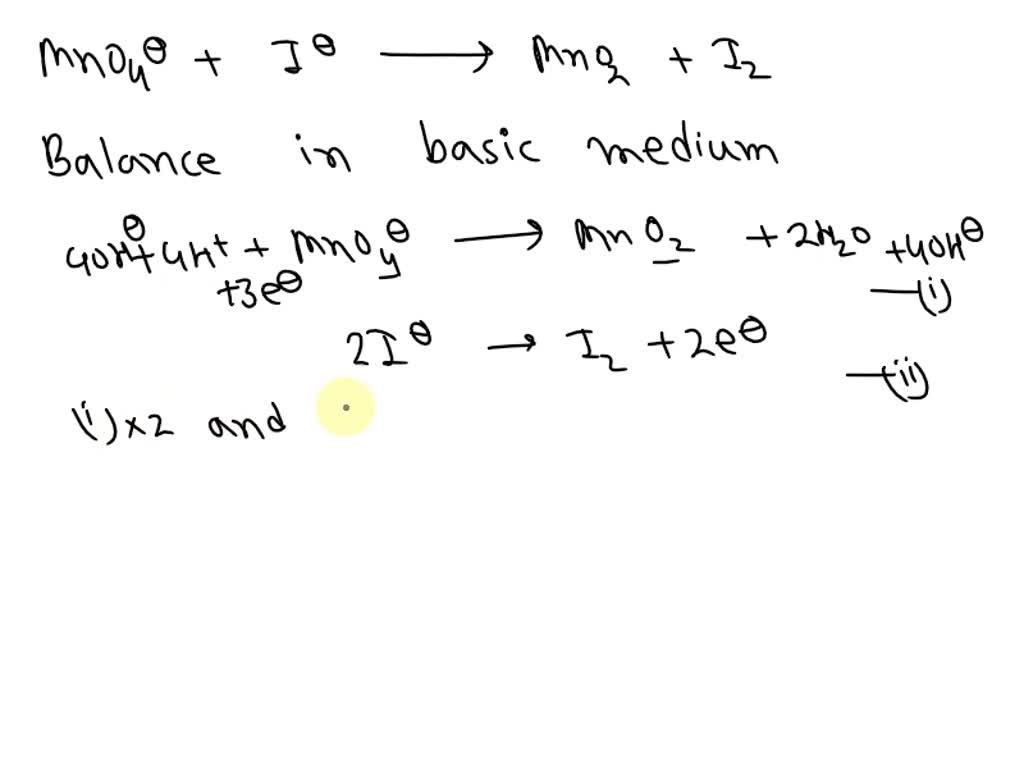 MnO₄⊖ + I⊖ ⟶ MnO₂ + I₂
Balance in basic medium
4OH⊖ + 4H⁺ + MnO₄⊖ ⟶ MnO₂ + 2H₂O + 4OH⊖
+3e⊖ —(i)
2I⊖ → I₂ + 2e⊖
—(ii)
(i)×2 and